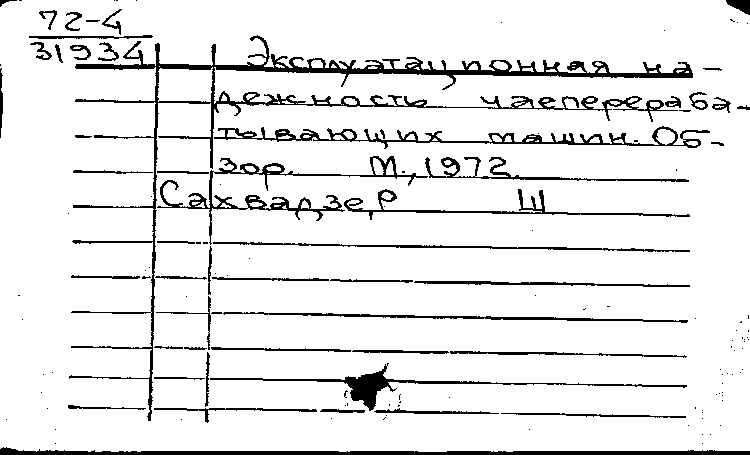 72-4
31934
Эксплуатационная на-
дежность чаеперераба-
тывающих машин. Об-
зор. М., 1972.
Сахвадзе, Р Ш